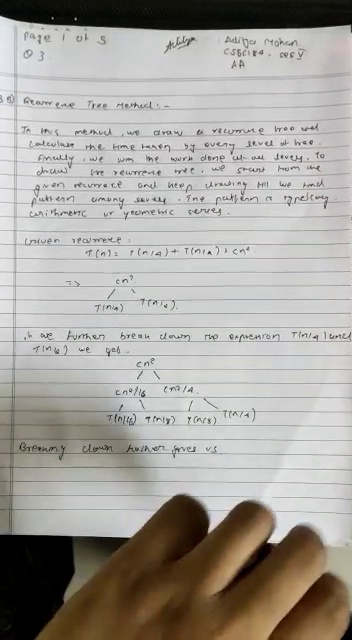 Page 1 of 5
Aditya Mohan
Q3
CSE V
AA
Recurrence Tree Method:-
In this method, we draw a recurrence tree and
calculate the time taken by every level of tree.
Finally, we sum the work done at all levels. To
draw the recurrence tree, we start from the
given recurrence and keep drawing till we find
pattern among levels. The pattern is typically
arithmetic or geometric series.
Given recurrence:
T(n) = T(n/4) + T(n/2) + cn²
=> cn²
T(n/4) T(n/2).
If we further break down the expression T(n/4) and
T(n/2) we get.
cn²
cn²/16 cn2/4.
T(n/16) T(n/8) T(n/8) T(n/4)
Breaking down further gives us